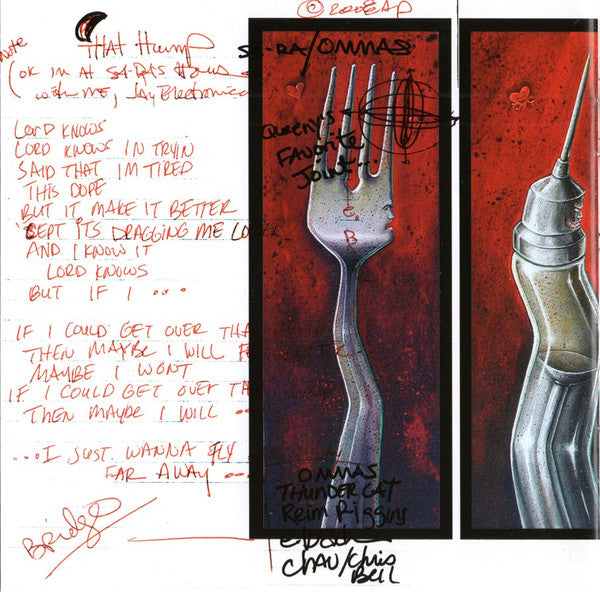 © 2008 EAP
THAT HUMP SA-RA/OMMAS
Note
(OK IM AT SA-RA'S House
with ME, JAY Electronica
LORD KNOWS
LORD KNOWS IN TRYIN
SAID THAT IM TIRED
THIS DOPE
BUT IT MAKE IT BETTER
'CEPT ITS DRAGGING ME LOWER
AND I KNOW IT
LORD KNOWS
BUT IF I ...
IF I COULD GET OVER THA
THEN MAYBE I WILL
MAYBE I WONT
IF I COULD GET OVER
THEN MAYBE I WILL ...
...I JUST WANNA FLY
FAR AWAY ...
Bridge
Queenys
FAVORITE
Joint...
E.
B
OMMAS
THUNDER CAT
Reim Riggins
CHAV/Chris
BELL